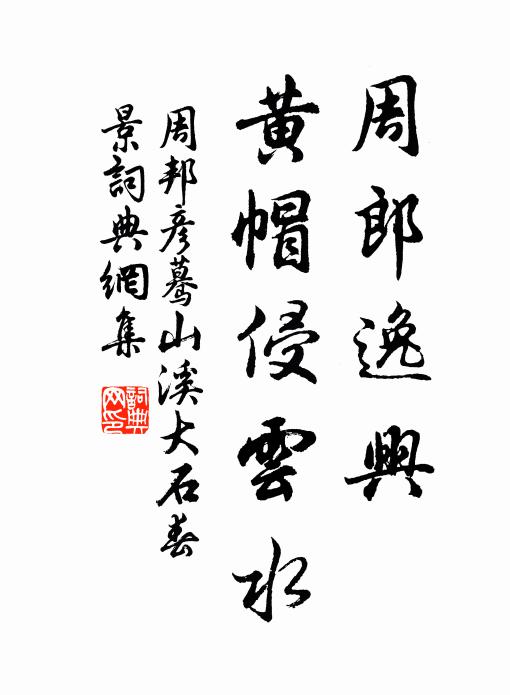 周郎逸興
黃帽侵雲水
周邦彦驀山溪大石春
景詞典網集
詞典網印